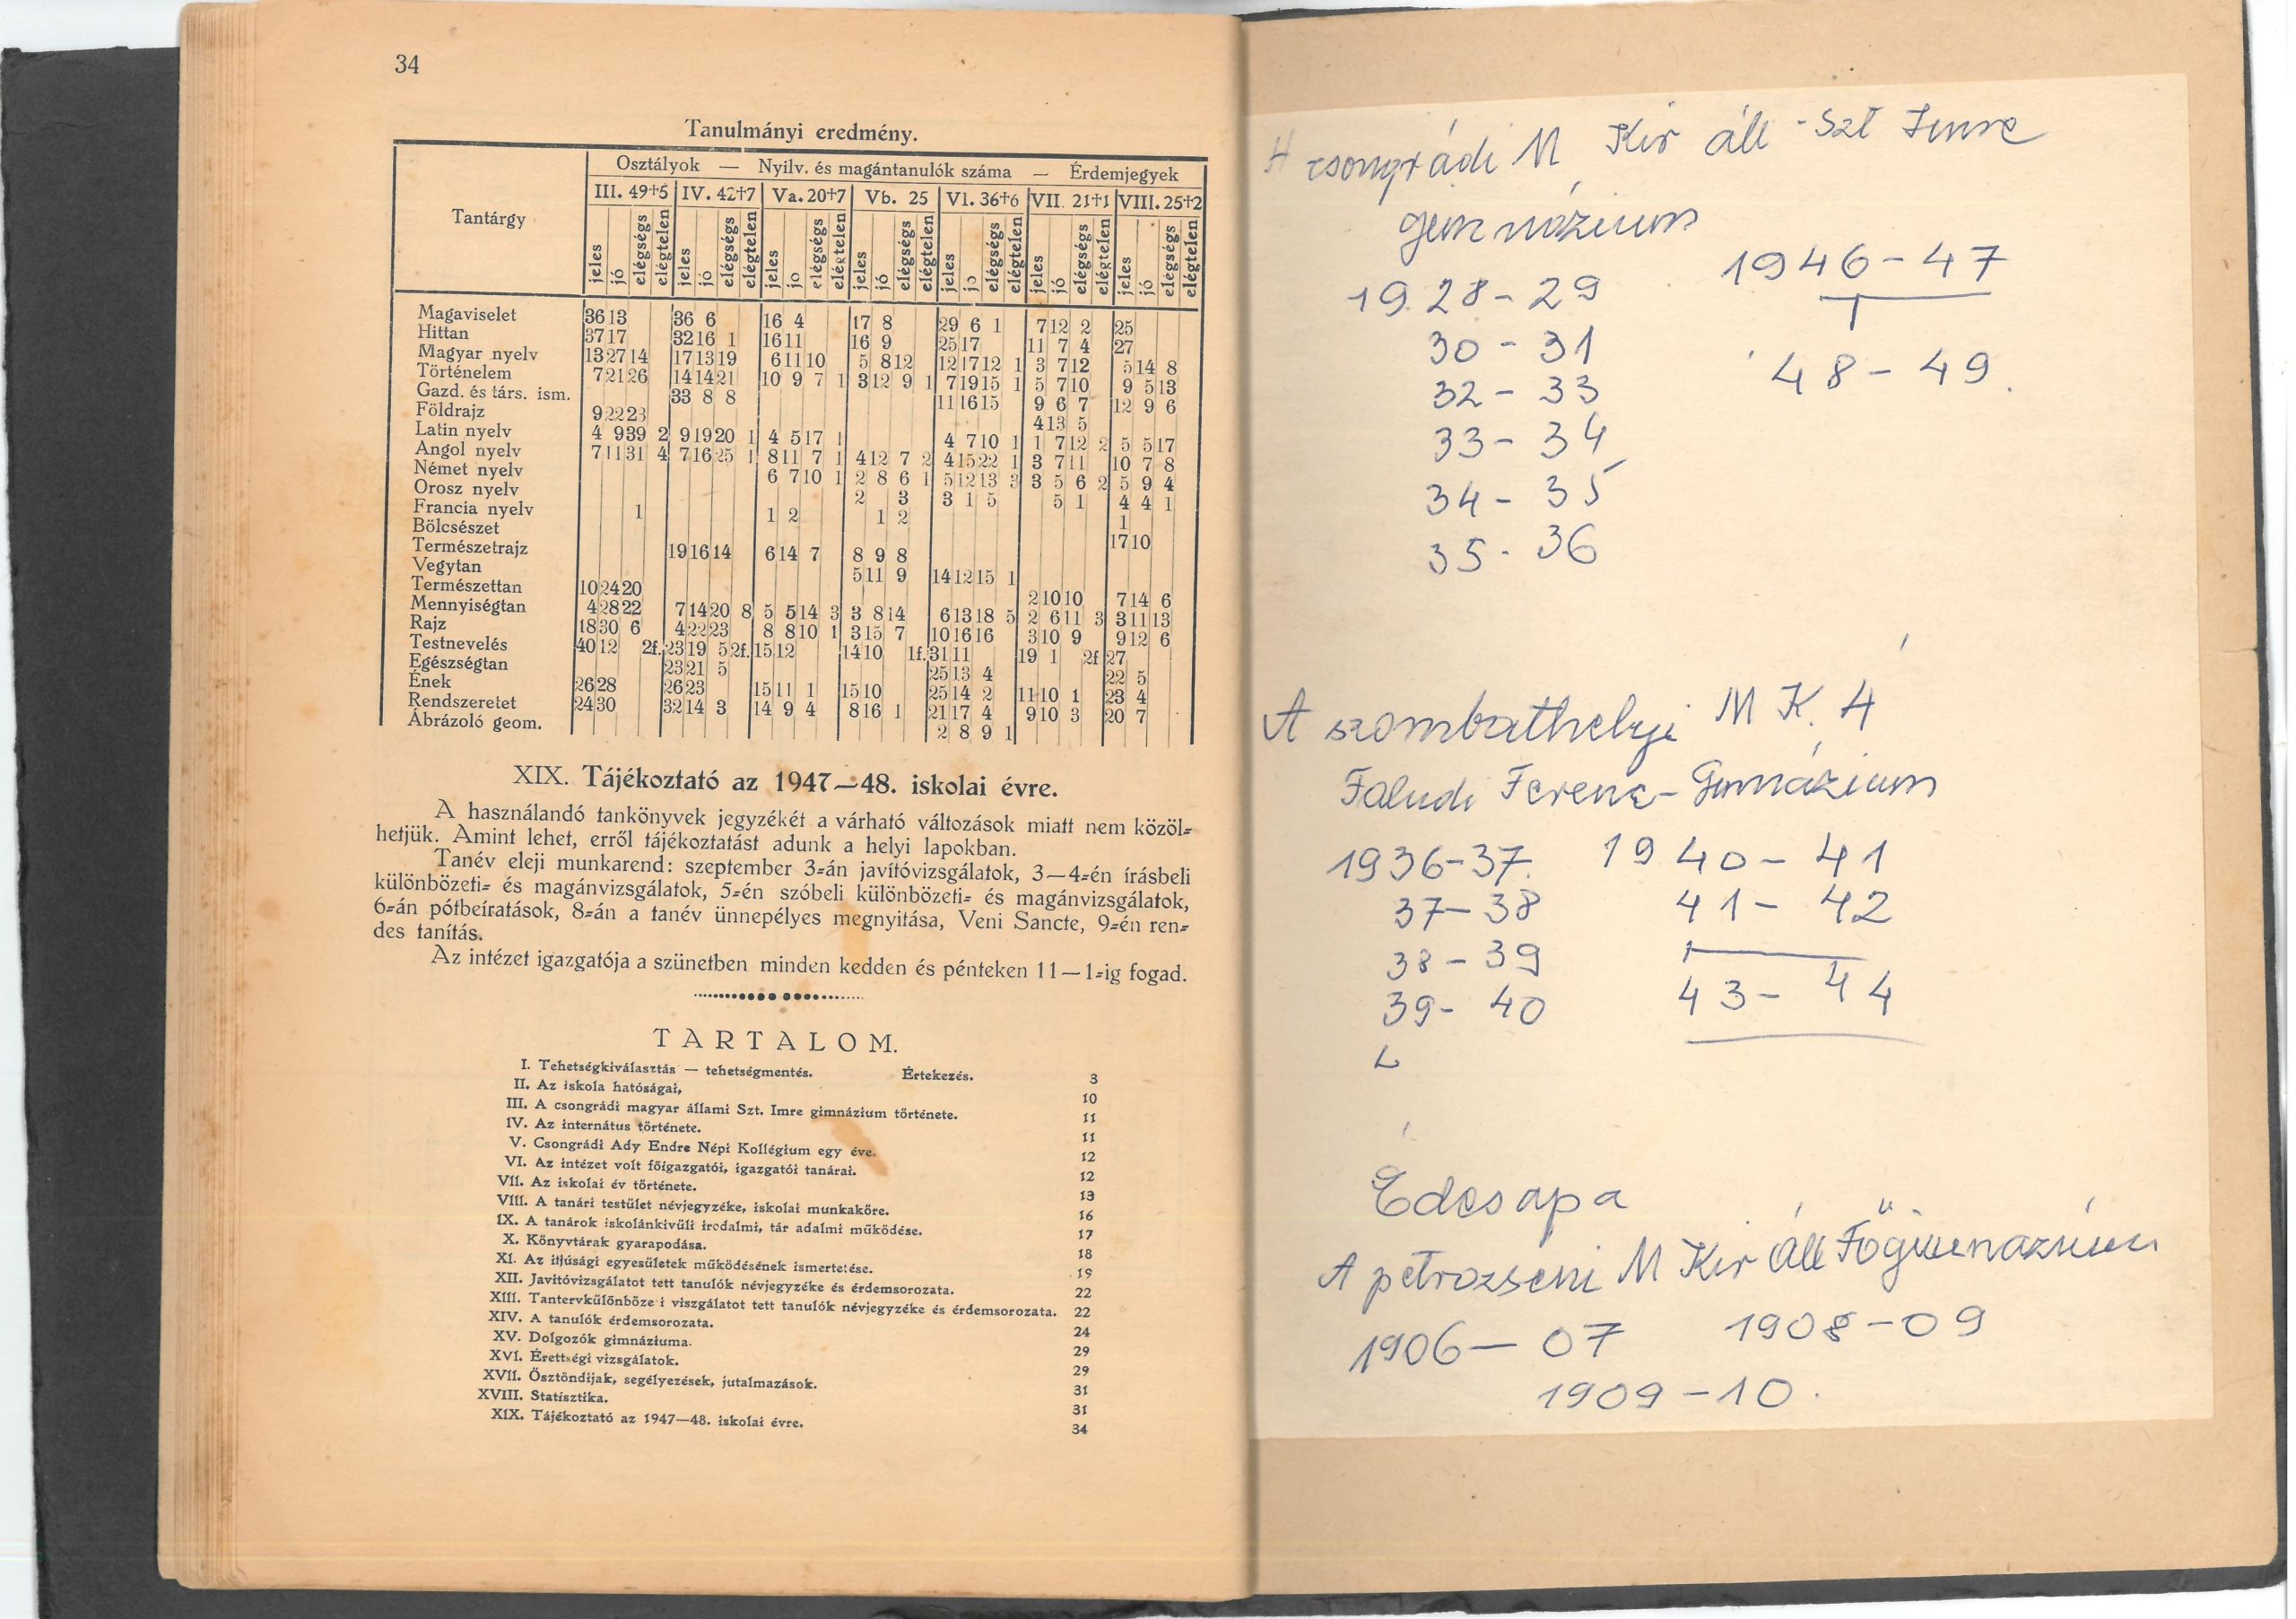 34
Tanulmányi eredmény.
Tantárgy
Osztályok — Nyilv. és magántanulók száma — Érdemjegyek
III. 49+5 IV. 42+7 Va. 20+7 Vb. 25 VI. 36+6 VII. 21+1 VIII. 25+2
jeles jó elégségs elégtelen jeles jó elégségs elégtelen jeles jo elégségs elégtelen jeles jó elégségs elégtelen jeles jo elégségs elégtelen jeles jó elégségs elégtelen jeles jó elégségs elégtelen
Magaviselet 36 13 36 6 16 4 17 8 29 6 1 7 12 2 25
Hittan 37 17 32 16 1 16 11 16 9 25 17 11 7 4 27
Magyar nyelv 13 27 14 17 13 19 6 11 10 5 8 12 12 17 12 1 3 7 12 5 14 8
Történelem 7 21 26 14 14 21 10 9 7 1 3 12 9 1 7 19 15 1 5 7 10 9 5 13
Gazd. és társ. ism. 33 8 8 11 16 15 9 6 7 12 9 6
Földrajz 9 22 23 4 13 5
Latin nyelv 4 9 39 2 9 19 20 1 4 5 17 1 4 7 10 1 1 7 12 2 5 5 17
Angol nyelv 7 11 31 4 7 16 25 1 8 11 7 1 4 12 7 2 4 15 22 1 3 7 11 10 7 8
Német nyelv 6 7 10 1 2 8 6 1 5 12 13 3 3 5 6 2 5 9 4
Orosz nyelv 2 3 3 1 5 5 1 4 4 1
Francia nyelv 1 1 2 1 2 1
Bölcsészet 17 10
Természetrajz 19 16 14 6 14 7 8 9 8
Vegytan 5 11 9 14 12 15 1
Természettan 10 24 20 2 10 10 7 14 6
Mennyiségtan 4 28 22 7 14 20 8 5 5 14 3 3 8 14 6 13 18 5 2 6 11 3 3 11 13
Rajz 18 30 6 4 22 23 8 8 10 1 3 15 7 10 16 16 3 10 9 9 12 6
Testnevelés 40 12 2f. 23 19 5 2f. 15 12 14 10 1f. 31 11 19 1 2f 27
Egészségtan 23 21 5 25 13 4 22 5
Ének 26 28 26 23 15 11 1 15 10 25 14 2 11 10 1 23 4
Rendszeretet 24 30 32 14 3 14 9 4 8 16 1 21 17 4 9 10 3 20 7
Ábrázoló geom. 2 8 9 1
XIX. Tájékoztató az 1947—48. iskolai évre.
A használandó tankönyvek jegyzékét a várható változások miatt nem közöl-
hetjük. Amint lehet, erről tájékoztatást adunk a helyi lapokban.
Tanév eleji munkarend: szeptember 3-án javítóvizsgálatok, 3—4-én írásbeli
különbözeti- és magánvizsgálatok, 5-én szóbeli különbözeti- és magánvizsgálatok,
6-án pótbeíratások, 8-án a tanév ünnepélyes megnyitása, Veni Sancte, 9-én ren-
des tanítás.
Az intézet igazgatója a szünetben minden kedden és pénteken 11—1-ig fogad.
TARTALOM.
I. Tehetségkiválasztás — tehetségmentés. Értekezés. 3
II. Az iskola hatóságai, 10
III. A csongrádi magyar állami Szt. Imre gimnázium története. 11
IV. Az internátus története. 11
V. Csongrádi Ady Endre Népi Kollégium egy éve. 12
VI. Az intézet volt főigazgatói, igazgatói tanárai. 12
VII. Az iskolai év története. 13
VIII. A tanári testület névjegyzéke, iskolai munkaköre. 16
IX. A tanárok iskolánkivüli irodalmi, tár adalmi működése. 17
X. Könyvtárak gyarapodása. 18
XI. Az itjúsági egyesületek működésének ismertetése. 19
XII. Javitóvizsgálatot tett tanulók névjegyzéke és érdemsorozata. 22
XIII. Tantervkülönböze i viszgálatot tett tanulók névjegyzéke és érdemsorozata. 22
XIV. A tanulók érdemsorozata. 24
XV. Dolgozók gimnáziuma. 29
XVI. Érettségi vizsgálatok. 29
XVII. Ösztöndijak, segélyezések, jutalmazások. 31
XVIII. Statisztika. 31
XIX. Tájékoztató az 1947—48. iskolai évre. 34
A csongrádi M Kir áll - Szt Imre
gimnázium
1928-29 1946-47
30-31 48-49.
32-33
33-34
34-35
35-36
A szombathelyi M K. Á
Faludi Ferenc-Gimnázium
1936-37. 1940-41
37-38 41-42
38-39 43-44
39-40
Édesapa
A petrozséni M Kir Áll Főgimnázium
1906-07 1908-09
1909-10.